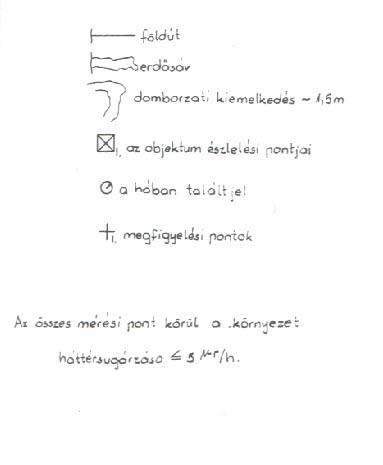 földút
erdősáv
domborzati kiemelkedés ~ 1,5m
1. az objektum észlelési pontjai
a hóban talált jel
1. megfigyelési pontok
Az összes mérési pont körül a környezet
háttérsugárzása ≤ 5 μr/h.